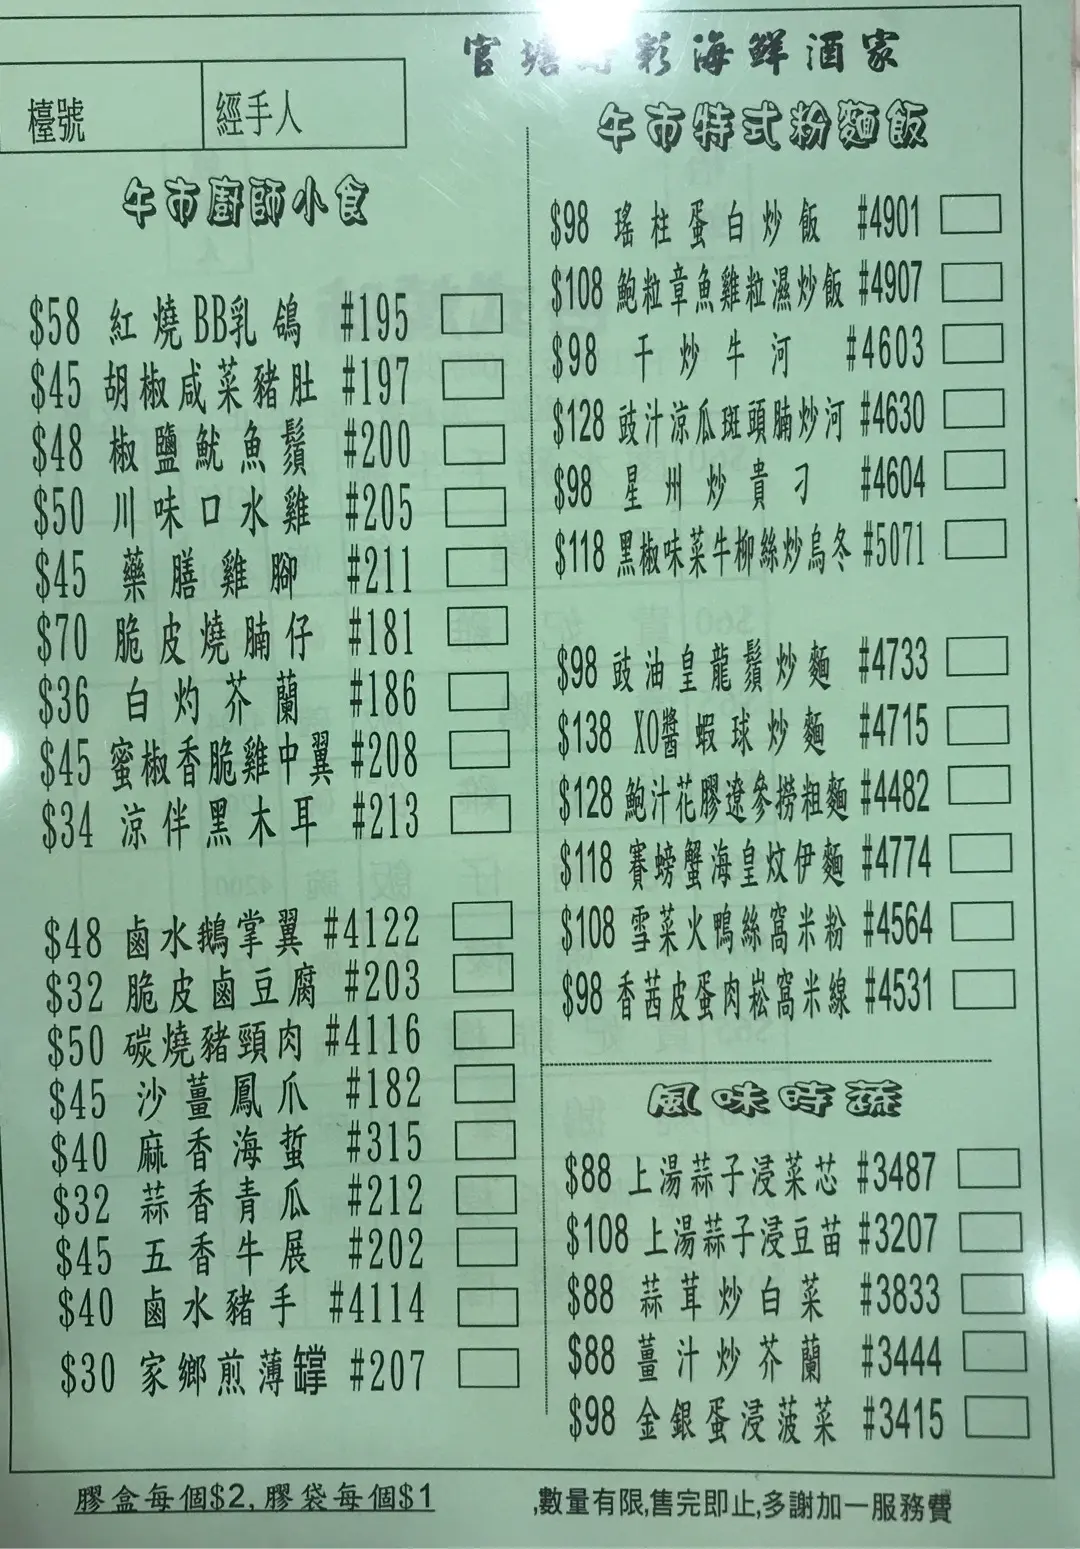 官塘 彩海鮮酒家
檯號 經手人
午市廚師小食
$58 紅燒BB乳鴿 #195
$45 胡椒咸菜豬肚 #197
$48 椒鹽魷魚鬚 #200
$50 川味口水雞 #205
$45 藥膳雞腳 #211
$70 脆皮燒腩仔 #181
$36 白灼芥蘭 #186
$45 蜜椒香脆雞中翼 #208
$34 涼伴黑木耳 #213
$48 鹵水鵝掌翼 #4122
$32 脆皮鹵豆腐 #203
$50 碳燒豬頸肉 #4116
$45 沙薑鳳爪 #182
$40 麻香海蜇 #315
$32 蒜香青瓜 #212
$45 五香牛展 #202
$40 鹵水豬手 #4114
$30 家鄉煎薄罉 #207
午市特式粉麵飯
$98 瑤柱蛋白炒飯 #4901
$108 鮑粒章魚雞粒濕炒飯 #4907
$98 干炒牛河 #4603
$128 豉汁涼瓜斑頭腩炒河 #4630
$98 星州炒貴刁 #4604
$118 黑椒味菜牛柳絲炒烏冬 #5071
$98 豉油皇龍鬚炒麵 #4733
$138 XO醬蝦球炒麵 #4715
$128 鮑汁花膠遼參撈粗麵 #4482
$118 賽螃蟹海皇炆伊麵 #4774
$108 雪菜火鴨絲窩米粉 #4564
$98 香茜皮蛋肉崧窩米線 #4531
風味時蔬
$88 上湯蒜子浸菜芯 #3487
$108 上湯蒜子浸豆苗 #3207
$88 蒜茸炒白菜 #3833
$88 薑汁炒芥蘭 #3444
$98 金銀蛋浸菠菜 #3415
膠盒每個$2,膠袋每個$1
,數量有限,售完即止,多謝加一服務費